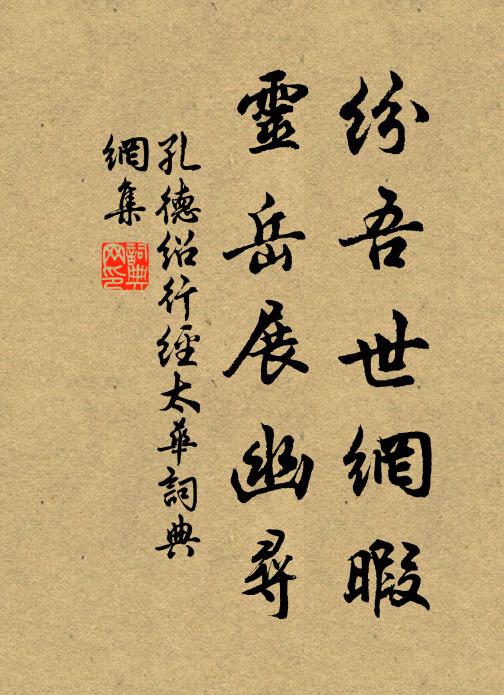 紛吾世網暇
靈岳展幽尋
孔德紹行經太華詞典
網集
詞典
网印